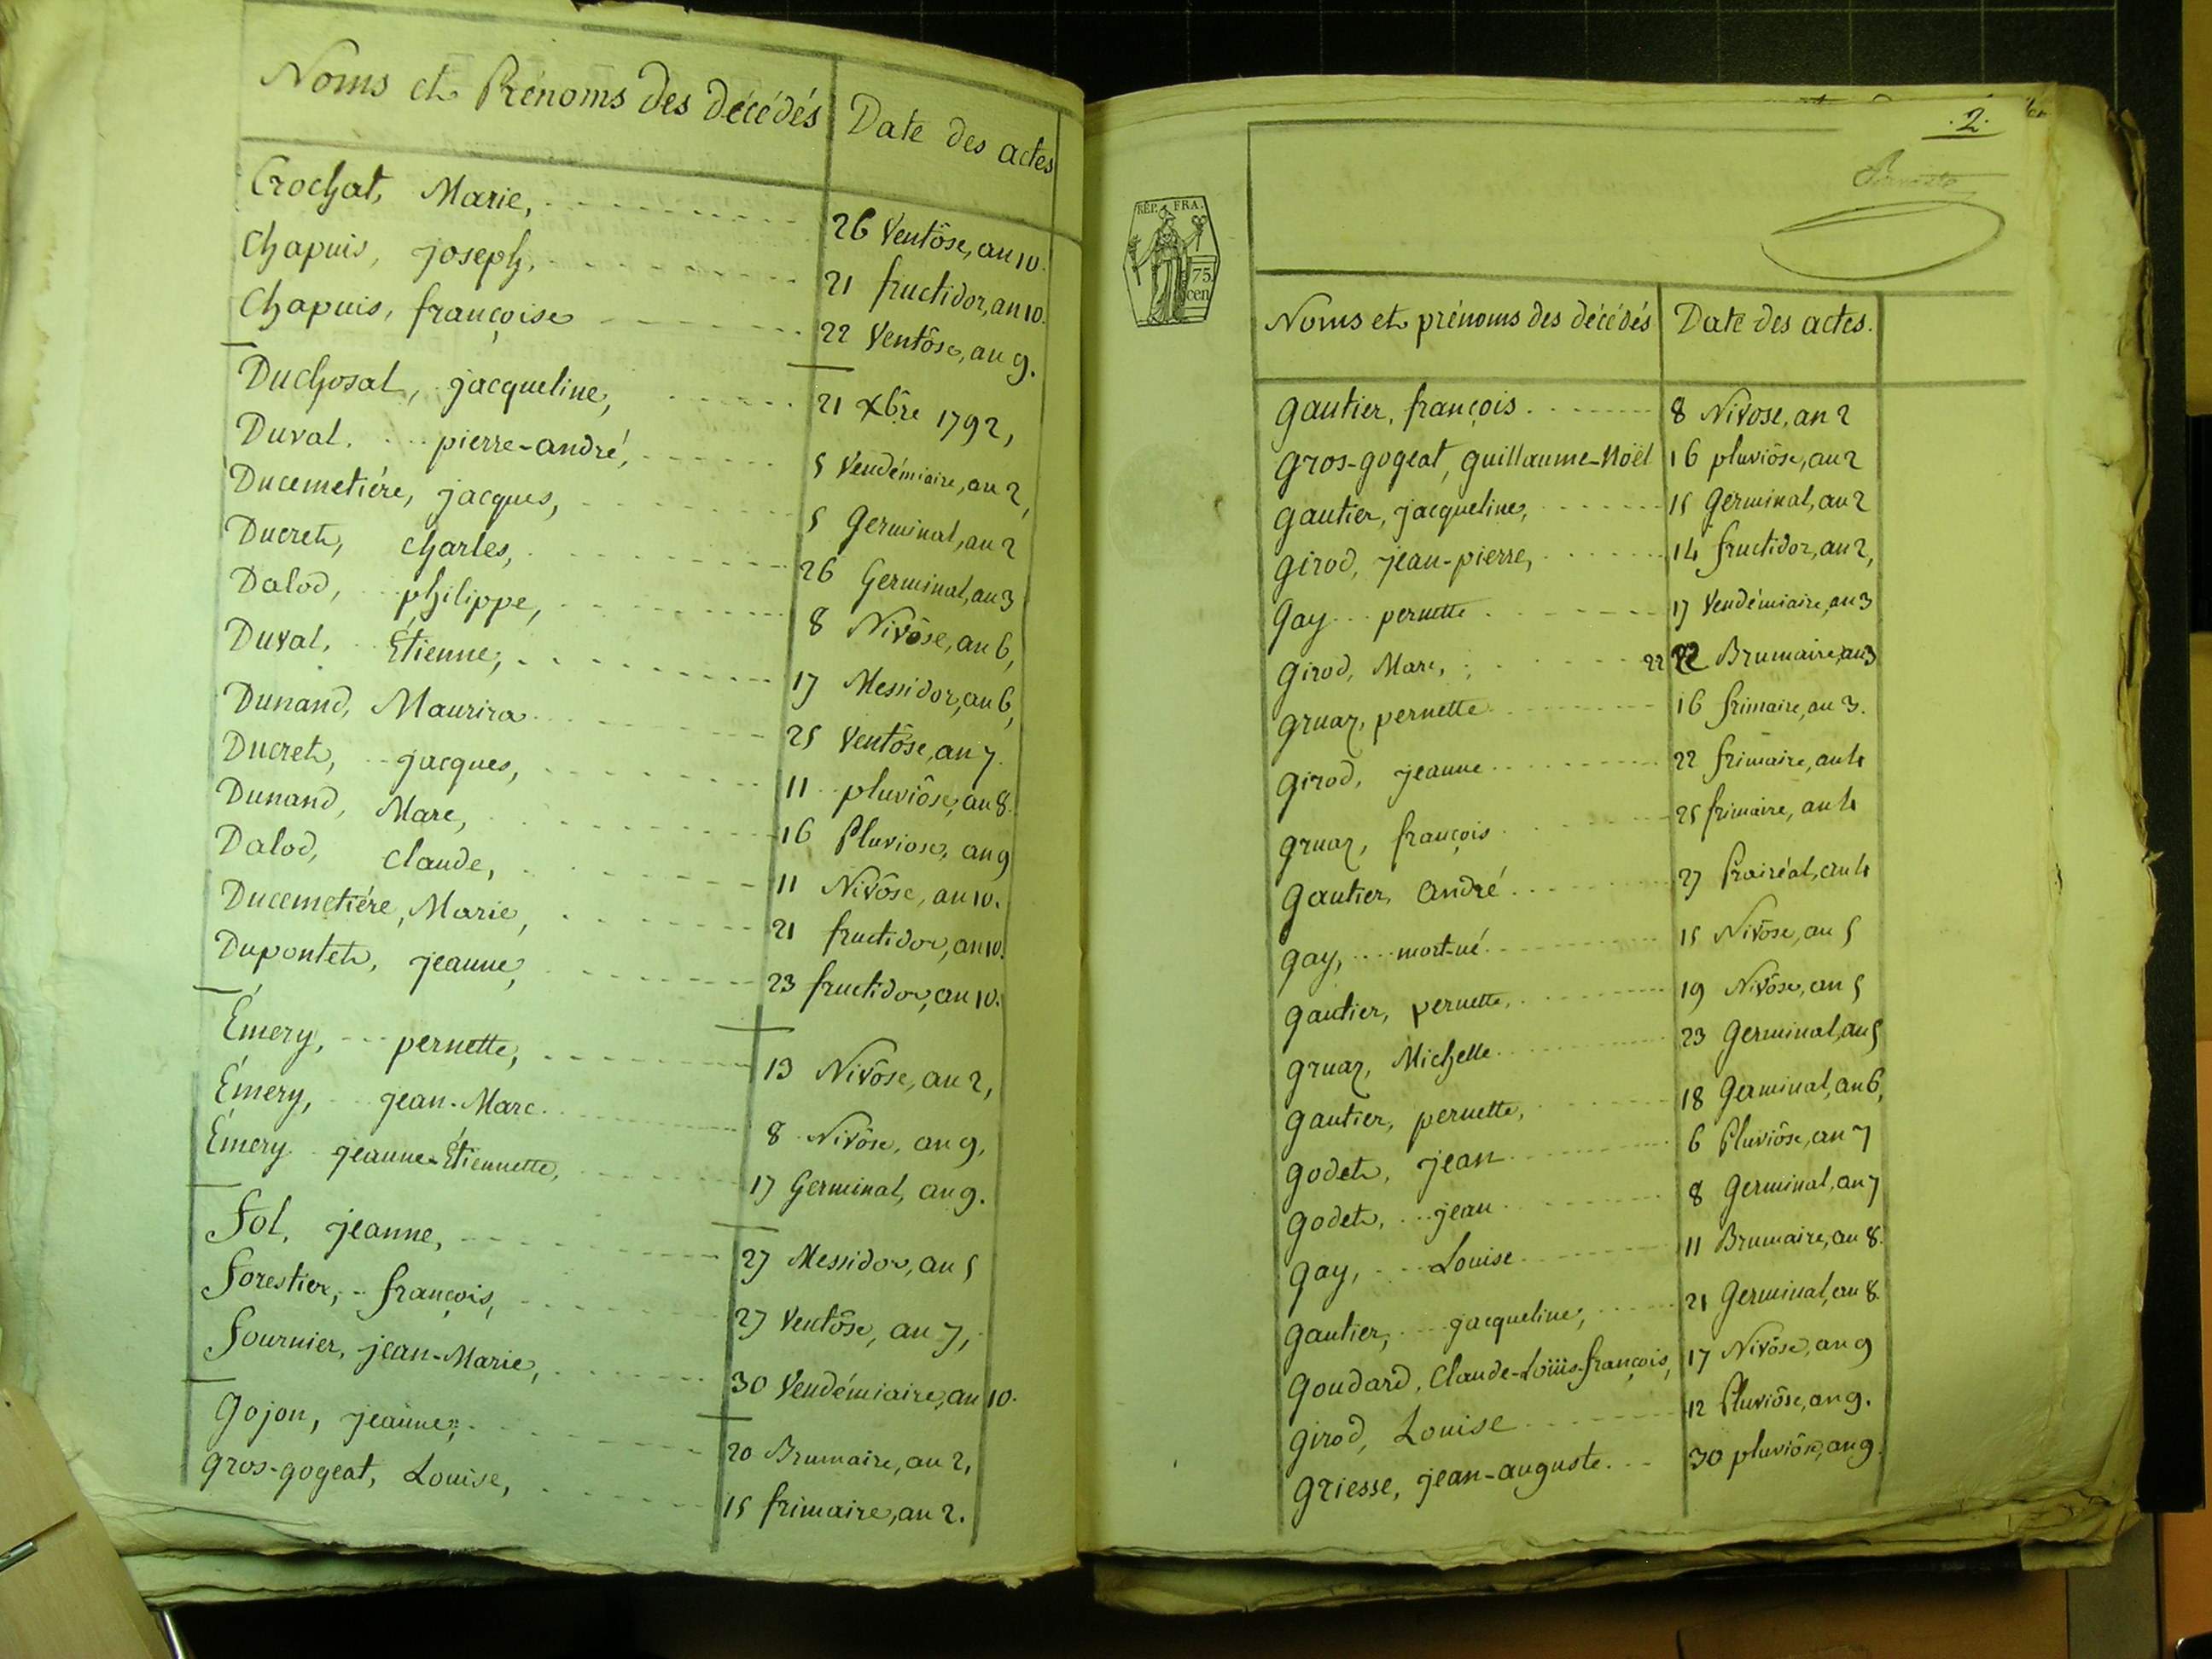 Noms et Prénoms des décédés Date des actes
Crochat, Marie, 26 Ventôse, an 10.
Chapuis, joseph, 21 fructidor, an 10.
Chapuis, françoise 22 Ventôse, an 9.
Duchosal, jacqueline, 21 Xbre 1792,
Duval, pierre-andré, 5 Vendémiaire, an 2,
Ducemetiére, jacques, 5 Germinal, an 2
Ducret, charles, 26 Germinal, an 3
Dalod, philippe, 8 Nivôse, an 6,
Duval, Étienne, 17 Messidor, an 6,
Dunand, Maurira 25 Ventôse, an 7.
Ducret, jacques, 11 pluviôse, an 8.
Dunand, Marc, 16 Pluviose, an 9
Dalod, claude, 11 Nivôse, an 10.
Ducemetiére, Marie, 21 fructidor, an 10.
Dupontet, jeanne, 23 fructidor, an 10.
Émery, pernette, 13 Nivôse, an 2,
Émery, jean-Marc 8 Nivôse, an 9,
Émery jeanne-Étiennette, 17 Germinal, an 9.
Fol, jeanne, 27 Messidor, an 5
Forestier, françois, 27 Ventôse, an 7,
Fournier, jean-Marie, 30 Vendémiaire, an 10.
Gojon, jeanne, 20 Brumaire, an 2,
Gros-gogeat, Louise, 15 frimaire, an 2.
.2.
RÉP. FRA.
75
cen
Noms et prénoms des décédés Date des actes.
Gautier, françois 8 Nivose, an 2
Gros-gogeat, guillaume-Noël 16 pluviôse, an 2
Gautier, jacqueline, 15 Germinal, an 2
Girod, jean-pierre, 14 fructidor, an 2,
Gay pernette 17 Vendémiaire, an 3
Girod, Marc, 22 22 Brumaire, an 3
Gruaz, pernette 16 frimaire, an 3.
Girod, jeanne 22 frimaire, an 4
Gruaz, françois 25 frimaire, an 4
Gautier, André 27 Prairéal, an 4
Gay, mort-né 15 Nivôse, an 5
Gautier, pernette, 19 Nivôse, an 5
Gruaz, Michelle 23 Germinal, an 5
Gautier, pernette, 18 Germinal, an 6,
Godet, jean 6 Pluviôse, an 7
Godet, jean 8 Germinal, an 7
Gay, Louise 11 Brumaire, an 8.
Gautier, jacqueline, 21 Germinal, an 8.
Goudard, Claude-Loüis-françois, 17 Nivôse, an 9
Girod, Louise 12 Pluviôse, an 9.
Griesse, jean-auguste. 30 pluviôse, an 9.